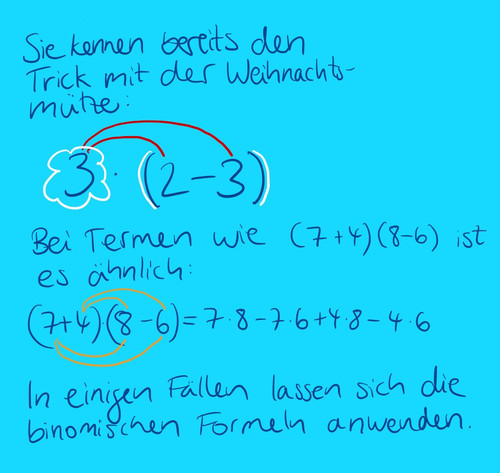 Sie kennen bereits den
Trick mit der Weihnachts-
mütze:
3 · (2 - 3)
Bei Termen wie (7+4)(8-6) ist
es ähnlich:
(7+4)·(8-6) = 7·8-7·6+4·8-4·6
In einigen Fällen lassen sich die
binomischen Formeln anwenden.